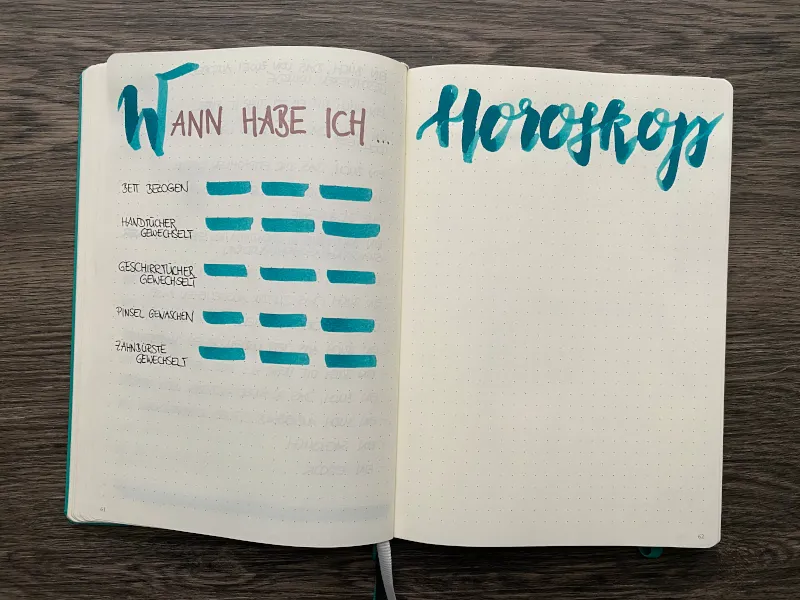 WANN HABE ICH ...
BETT BEZOGEN
HANDTÜCHER
GEWECHSELT
GESCHIRRTÜCHER
GEWECHSELT
PINSEL GEWASCHEN
ZAHNBÜRSTE
GEWECHSELT
61
Horoskop
62